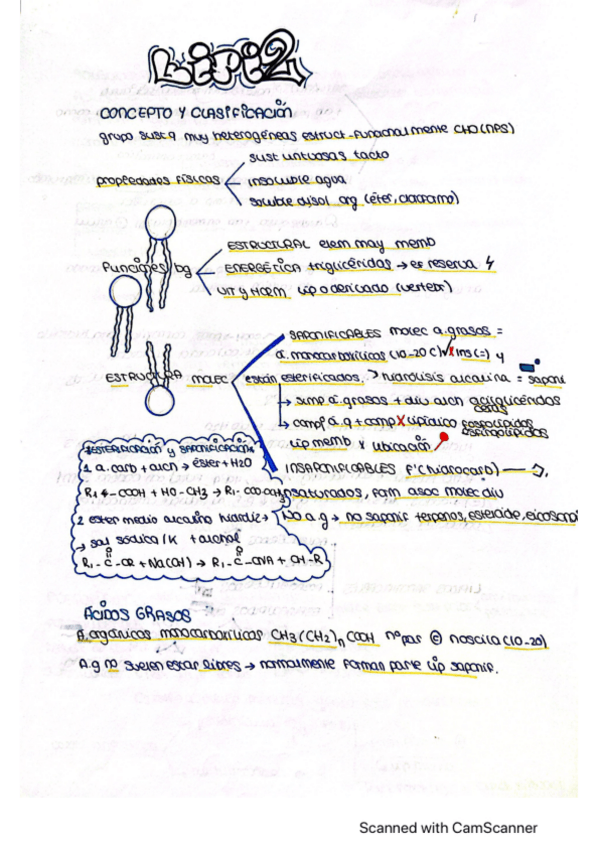 LiPi2
CONCEPTO Y CLASIFICACIÓN
grupo sust q muy heterogéneas estruct-funcionalmente CHO(NPS)
propiedades físicas
sust untuosas tacto
insoluble agua
soluble disol. org (éter, cloroformo)
Funciones bg
ESTRUCTURAL elem may memb
ENERGÉTICA triglicéridos → es reserva
VIT y HORM lip o derivado (vertebr)
ESTRUCTURA molec
SAPONIFICABLES molec a.grasos =
a. monocarboxílicos (10-20 C) y
están esterificados. hidrólisis alcalina = saponi
simp a. grasos + alch acilglicéridos
ceras
compl a. g + comp X lipídico fosfolípidos
esfingolípidos
lip memb x ubicación
INSAPONIFICABLES (hidrocarb)
insaturados, Form asoc molec
No a.g → no saponif terpenos, esteroide, eicosanoi
ESTERIFICACIÓN y SAPONIFICACIÓN
1 a. carb + alch → éster + H2O
R1 - COOH + HO - CH3 → R1 - COO-CH3
2 ester medio alcalino hidróliz →
→ sal sódica/K + alcohol
O O
R1 - C - OR + Na(OH) → R1 - C - ONA + OH - R
ÁCIDOS GRASOS
A. orgánicos monocarboxílicos CH3(CH2)n COOH nº par C (10-20)
A.g no suelen estar libres → normalmente forman parte lip saponif.
Scanned with CamScanner